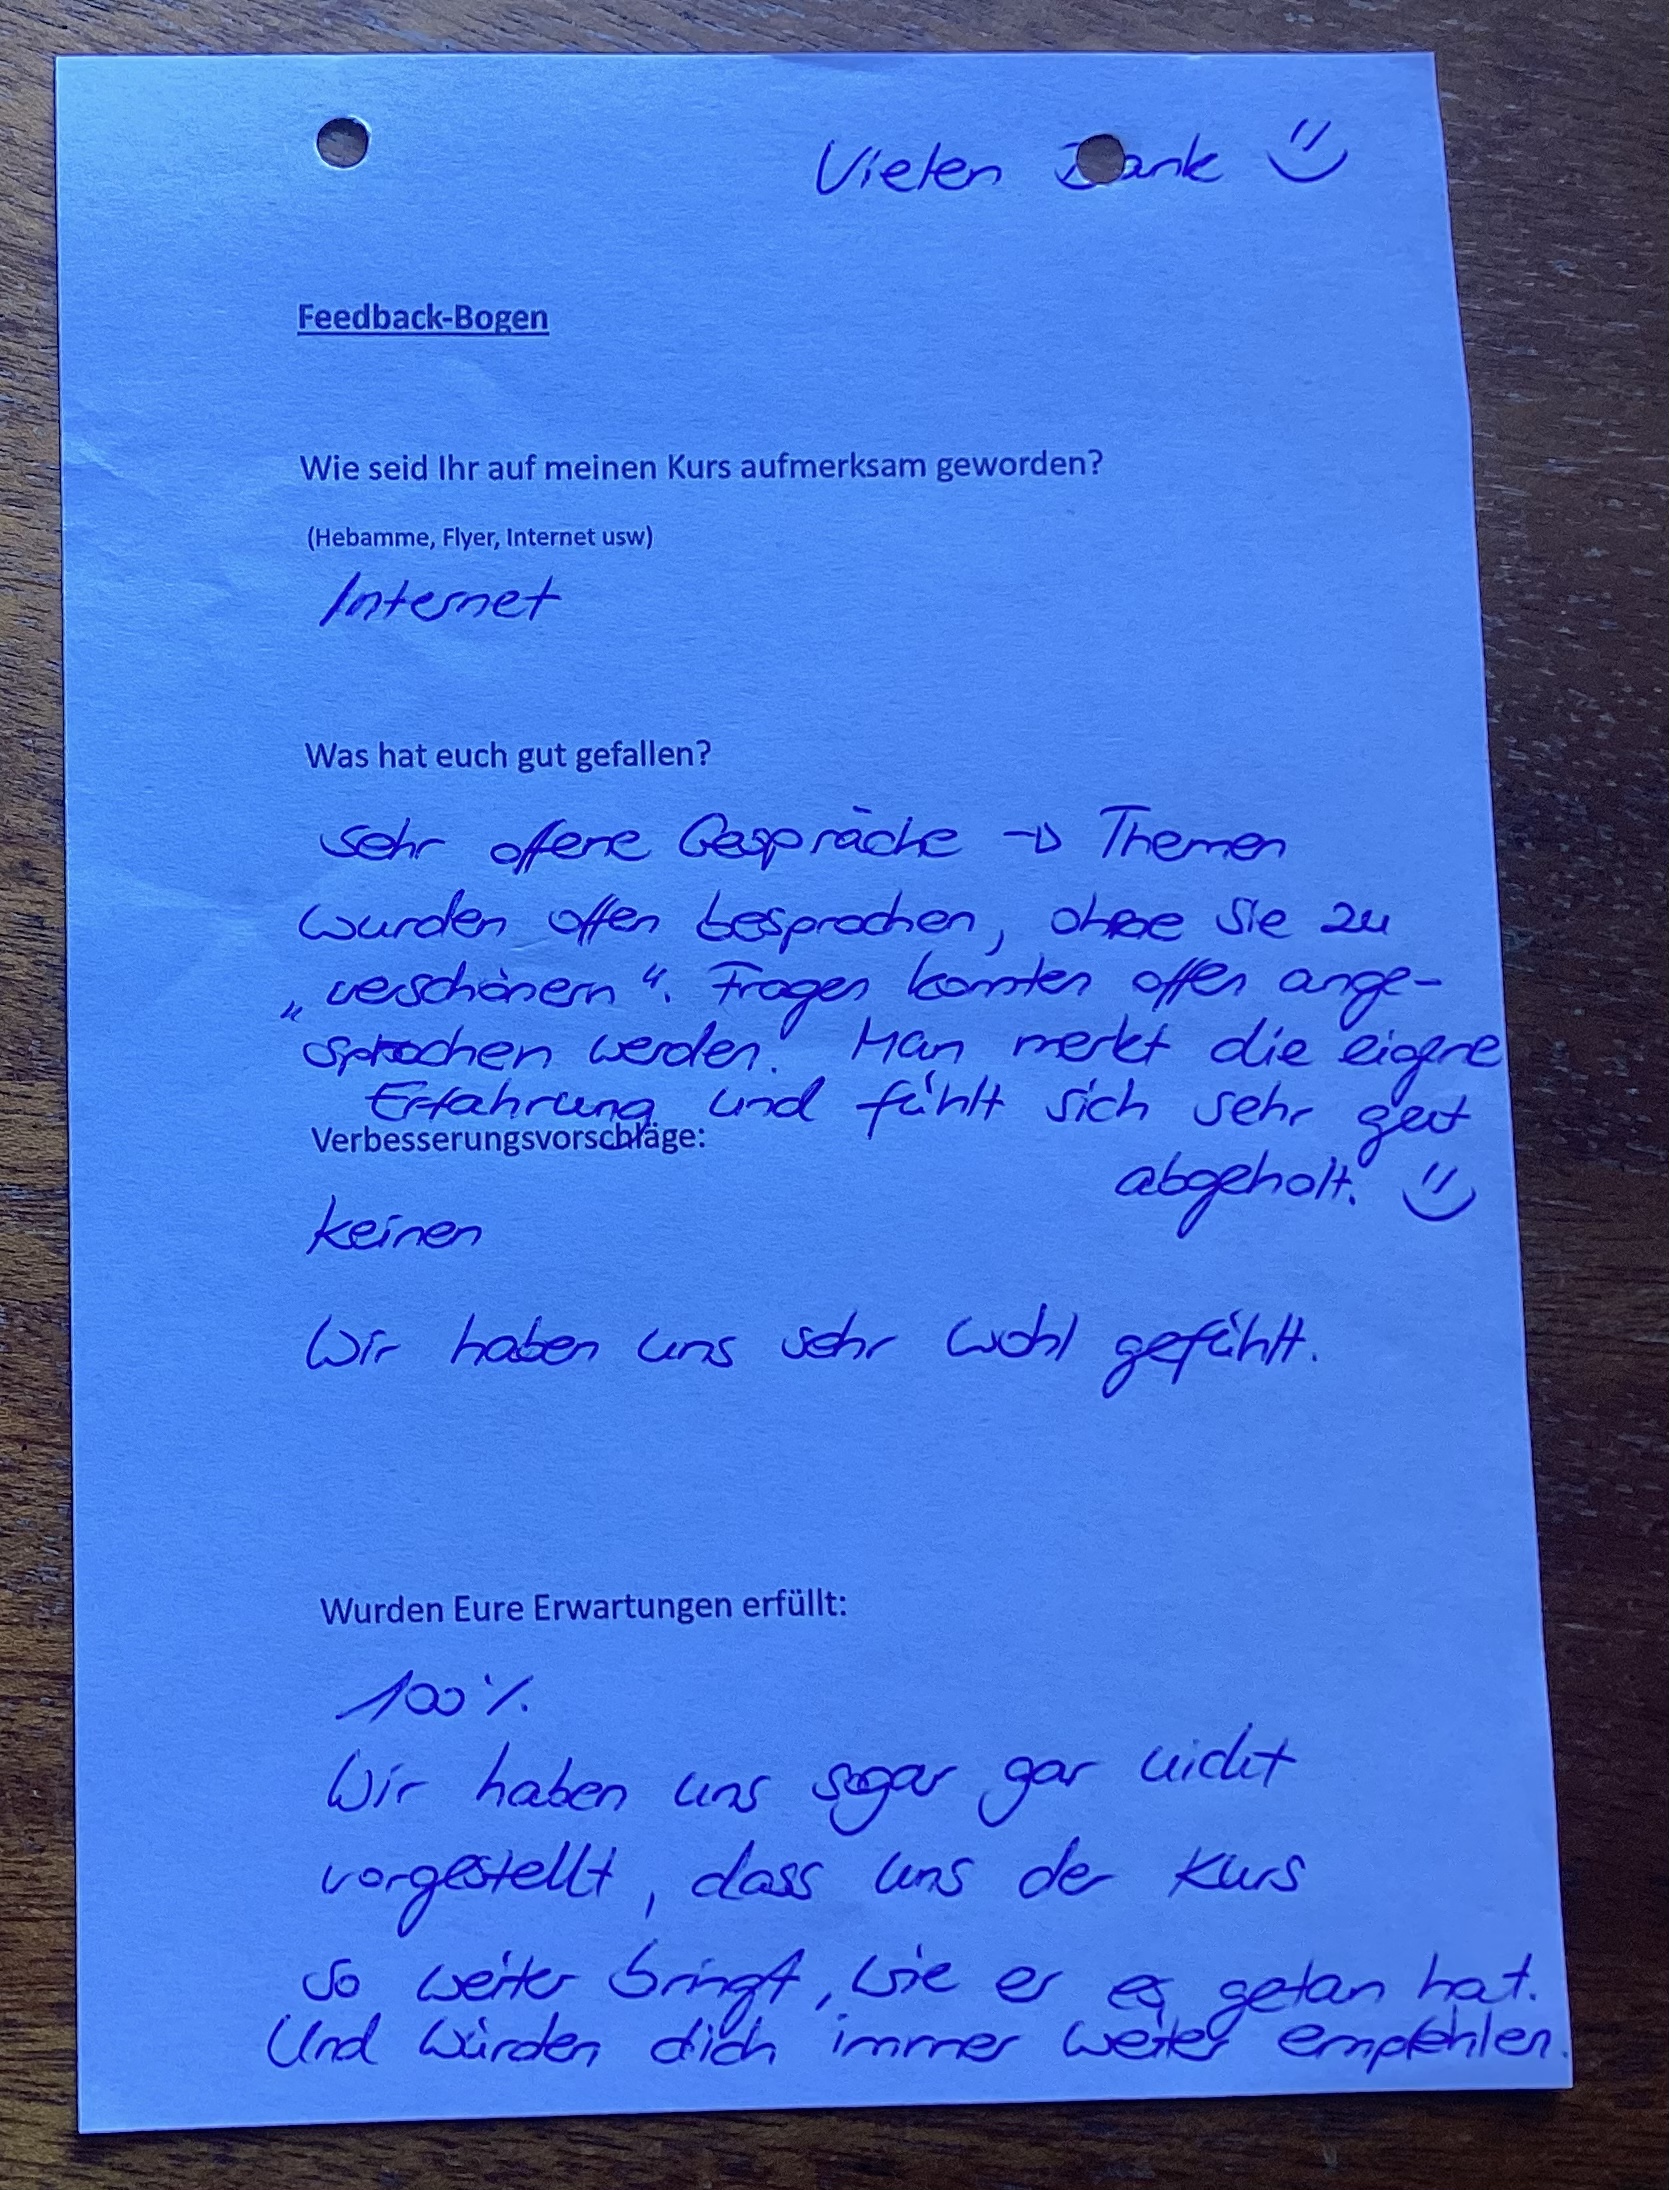 Vielen Dank
Feedback-Bogen
Wie seid Ihr auf meinen Kurs aufmerksam geworden?
(Hebamme, Flyer, Internet usw)
Internet
Was hat euch gut gefallen?
sehr offene Gespräche → Themen
wurden offen besprochen, ohne Sie zu
„verschönern“. Fragen konnten offen ange-
sprochen werden. Man merkt die eigene
Erfahrung und fühlt sich sehr gut
abgeholt.
Verbesserungsvorschläge:
keinen
Wir haben uns sehr wohl gefühlt.
Wurden Eure Erwartungen erfüllt:
100%
Wir haben uns sogar gar nicht
vorgestellt, dass uns der Kurs
so weiter bringt, wie er es getan hat.
Und würden dich immer weiter empfehlen.